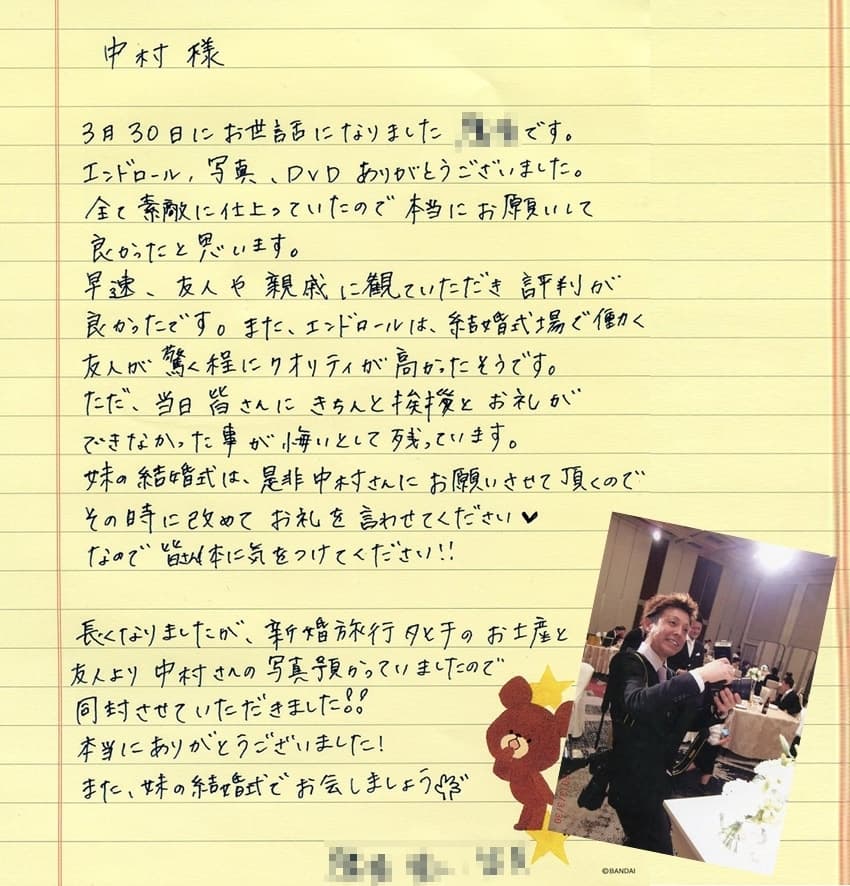 中村様
3月30日にお世話になりました です。
エンドロール、写真、DVDありがとうございました。
全て素敵に仕上っていたので本当にお願いして
良かったと思います。
早速、友人や親戚に観ていただき評判が
良かったです。また、エンドロールは、結婚式場で働く
友人が驚く程にクオリティが高かったそうです。
ただ、当日皆さんにきちんと挨拶とお礼が
できなかった事が悔いとして残っています。
妹の結婚式は、是非中村さんにお願いさせて頂くので
その時に改めてお礼を言わせてください♥
なので皆さん体に気をつけてください!!
長くなりましたが、新婚旅行 のお土産と
友人より中村さんの写真預かっていましたので
同封させていただきました!!
本当にありがとうございました!
また、妹の結婚式でお会しましょう
©BANDAI